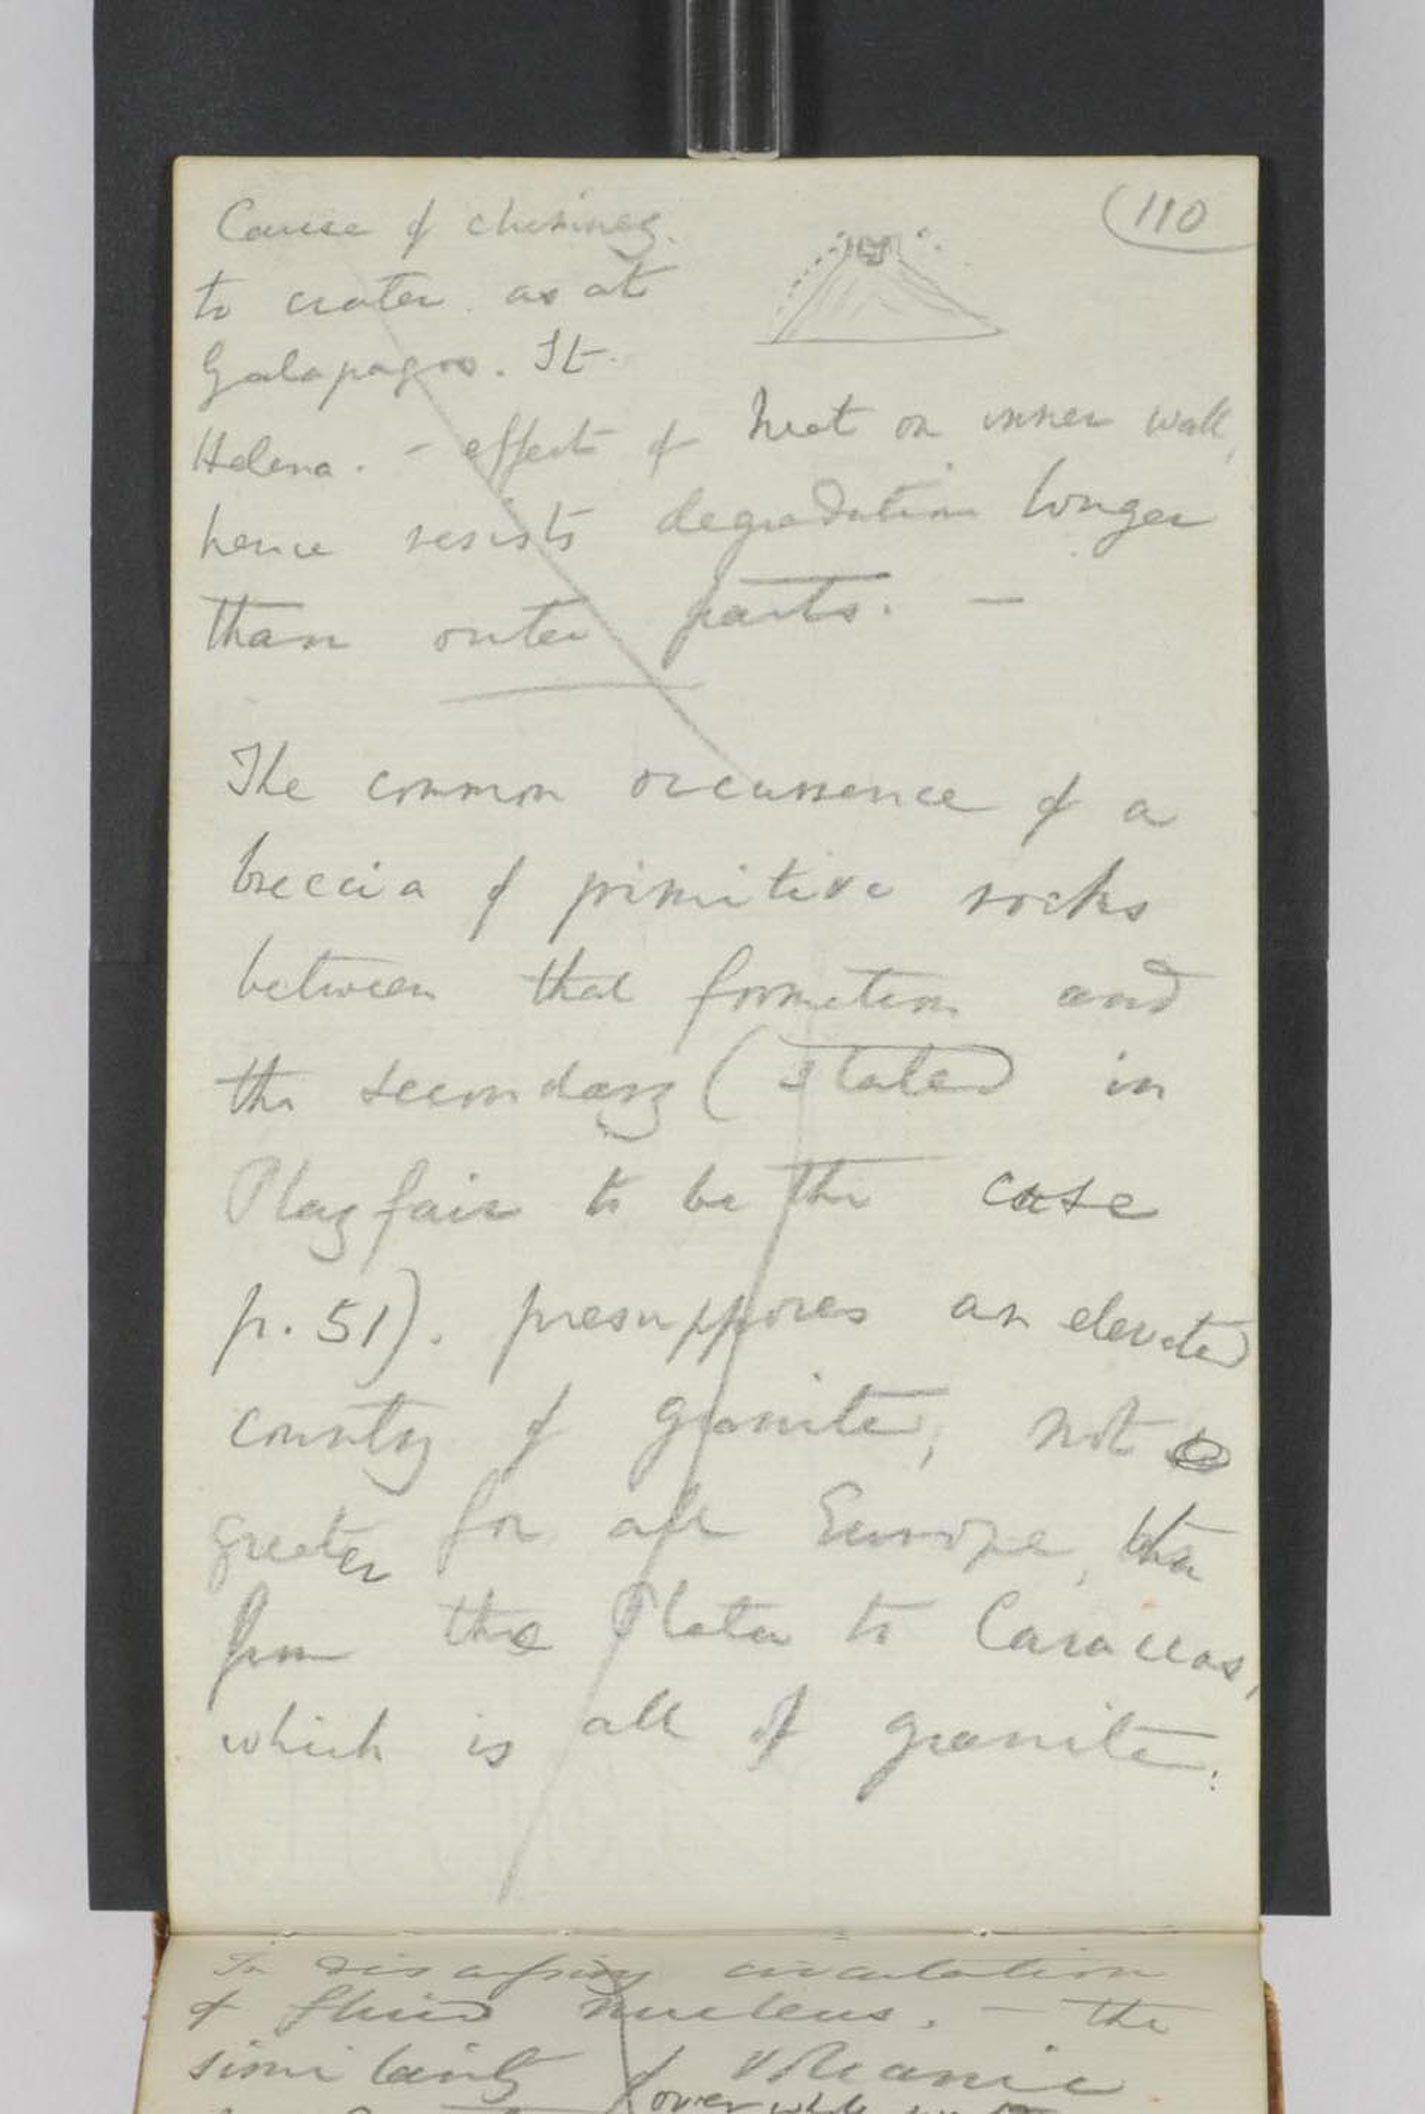 (110
Cause of chimney
to crater. as at
Galapagos. St.
Helena. — effect of heat on inner wall,
hence resists degradation longer
than outer parts. —
The common occurrence of a
breccia of primitive rocks
between that formation and
the secondary (stated in
Playfair to be the case
p. 51). presupposes an elevated
country of granite, not
greater for all Europe, than
from the Plata to Caraccas,
which is all of granite.
In discussing circulation
of fluid nucleus. — the
similarity of Volcanic
over whole